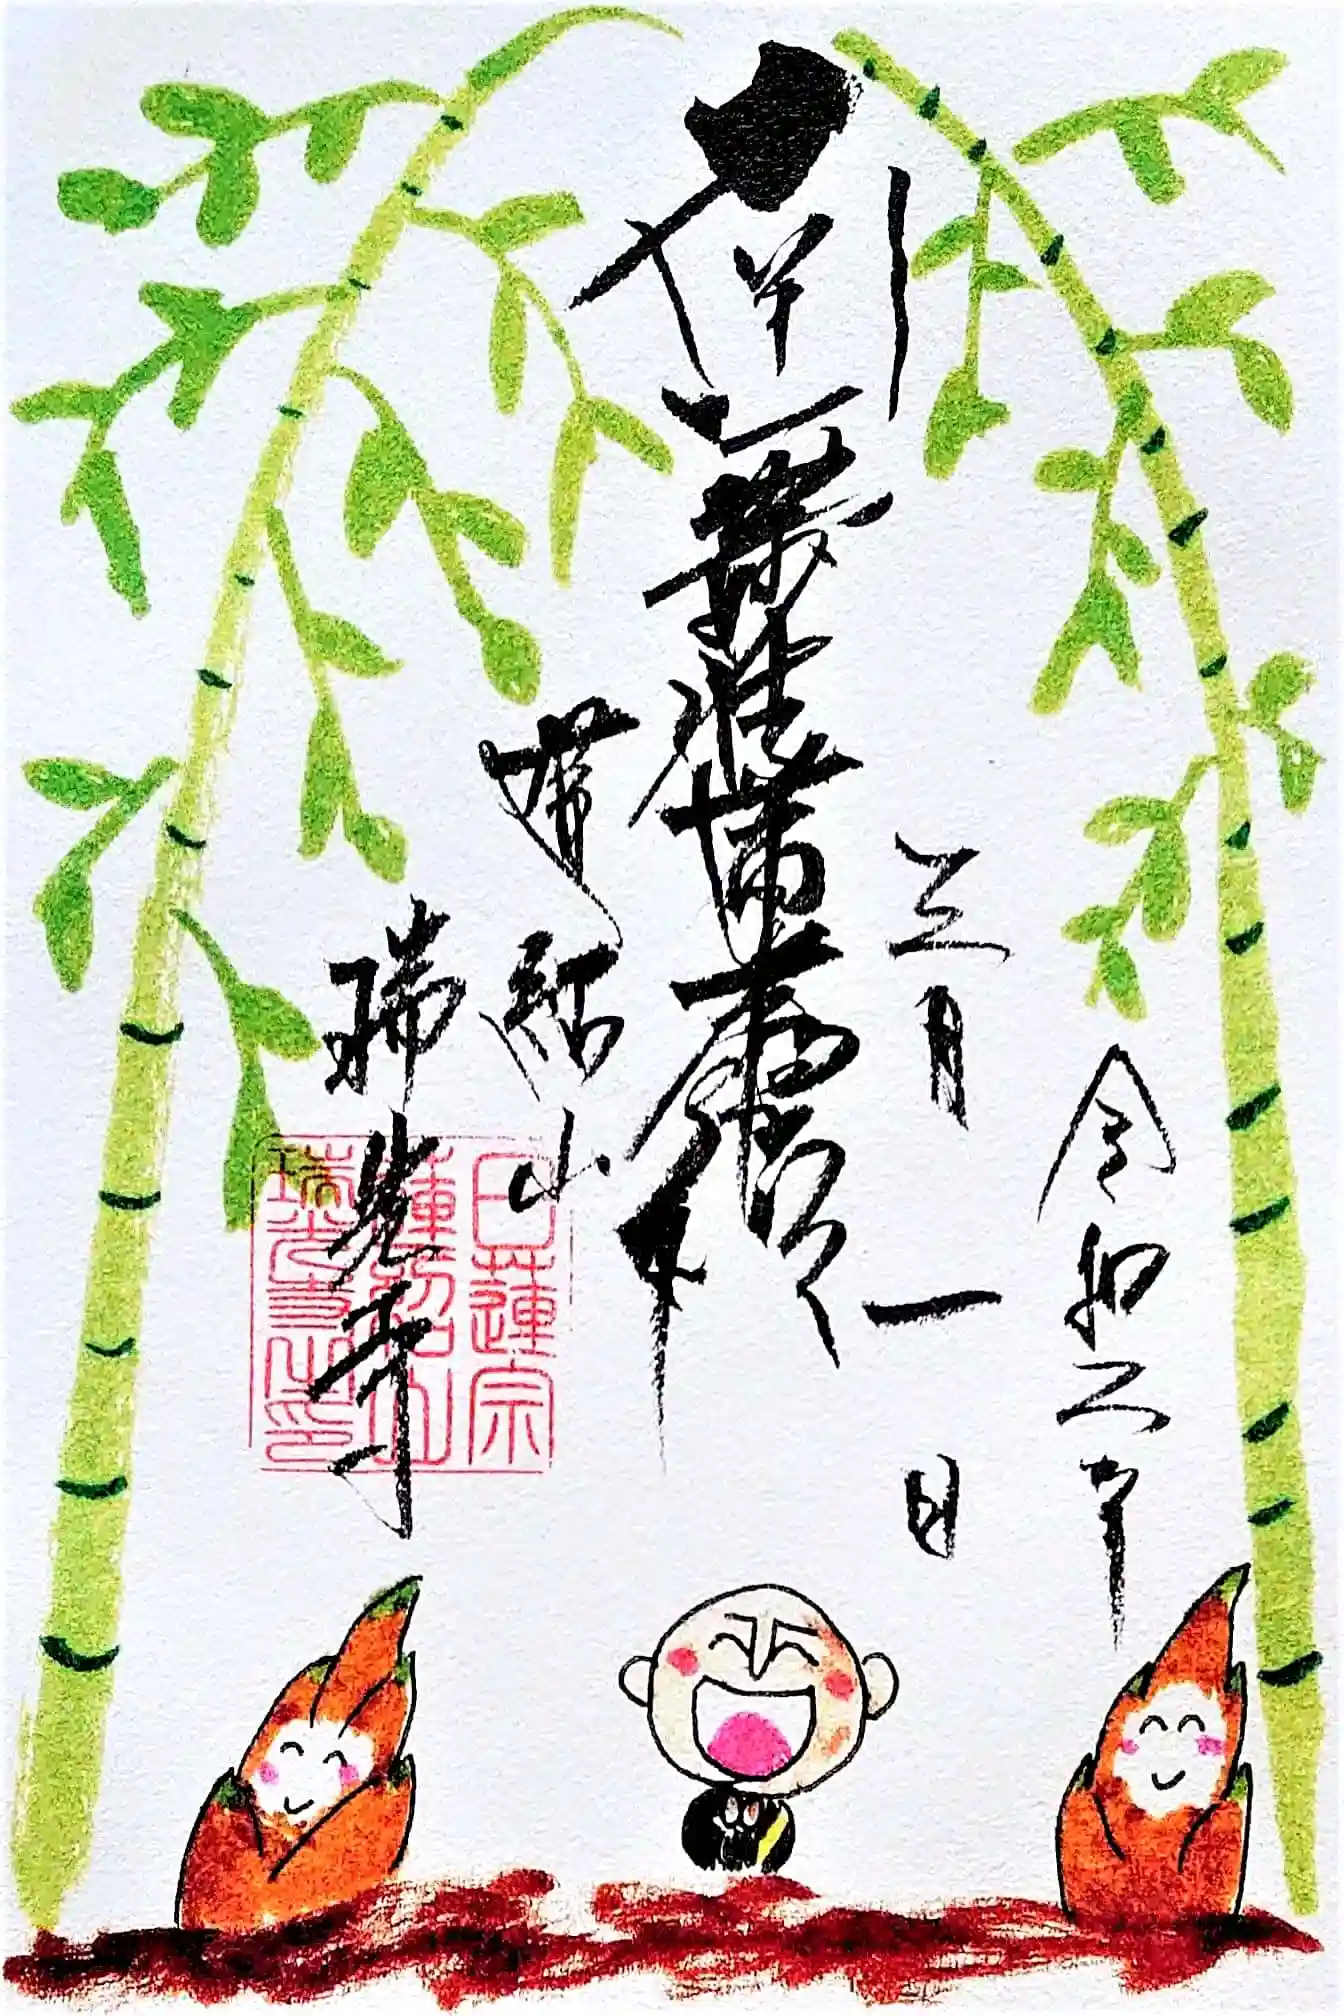 令和二年
三月一日
南無妙法蓮華経
瑞光寺
日蓮宗
瑞光寺之印